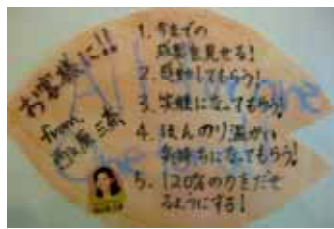 お客様に!!
from
1. 今までの
成果を見せる!
2. 感動してもらう!
3. 笑顔になってもらう!
4. ほんのり温かい
気持ちになってもらう!
5. 120%の力をだせ
るようにする!
All